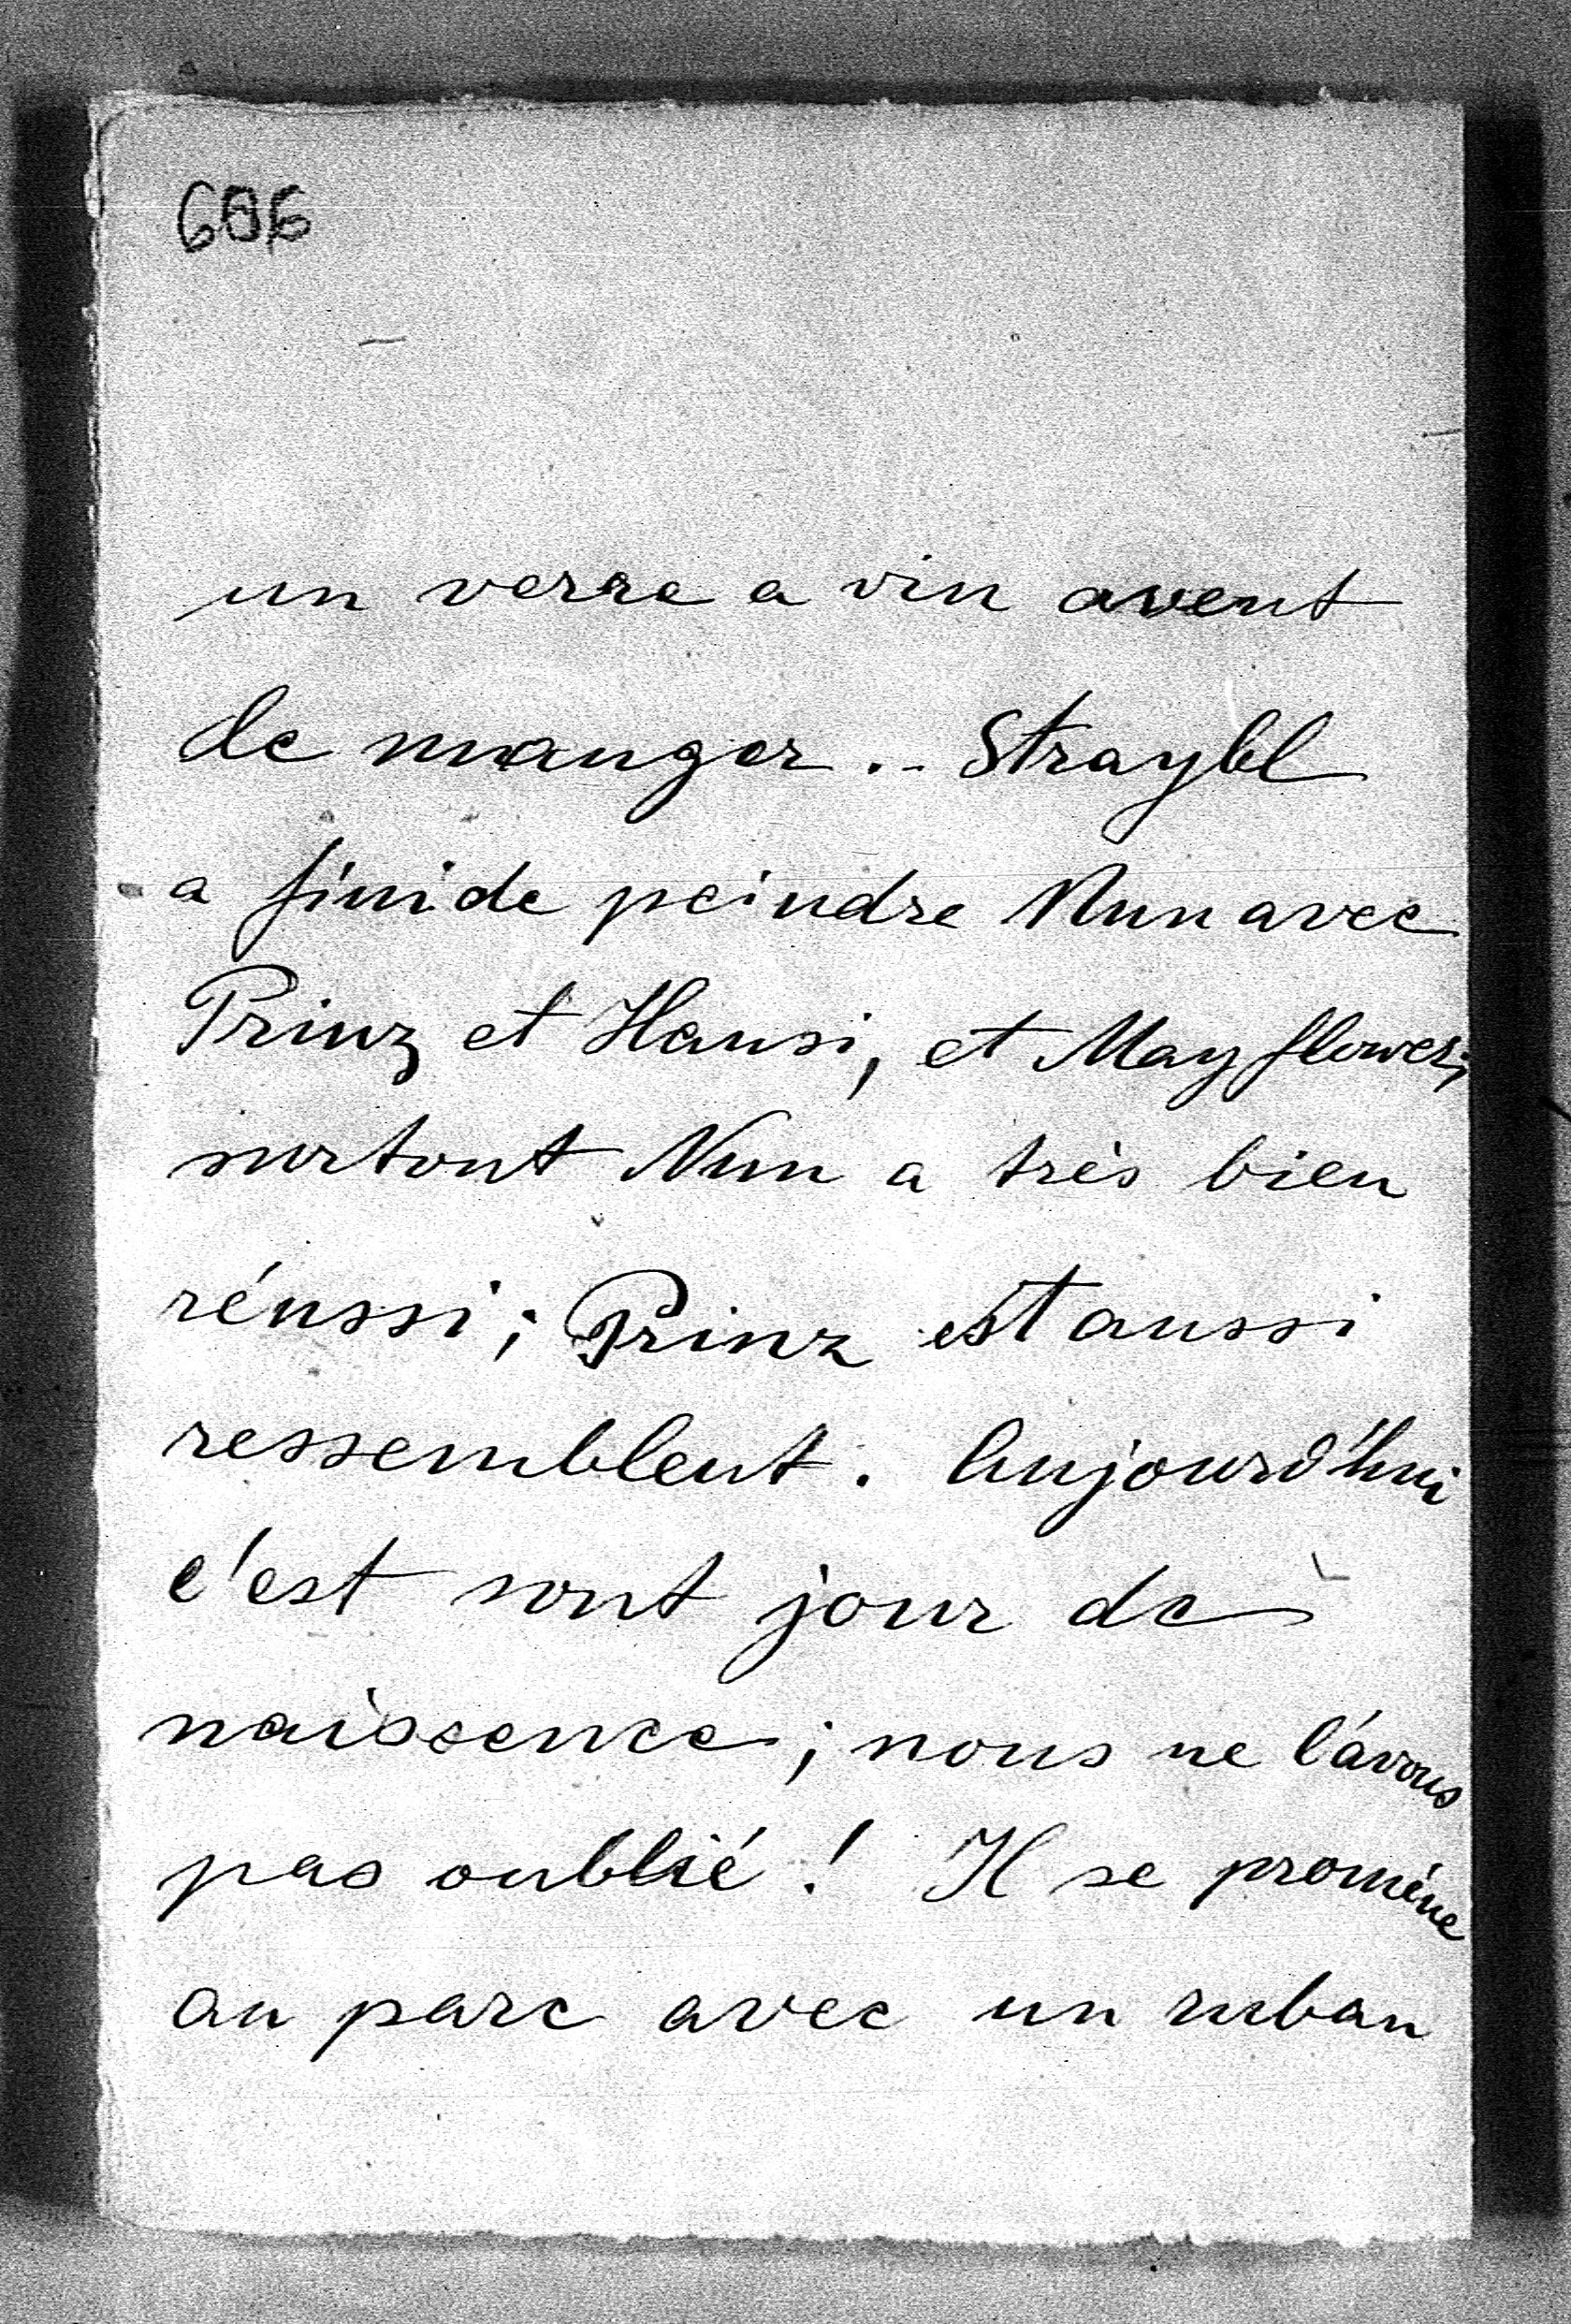 un verre a vin avent
de manger. - Straybl
a fini de peindre Nun avec
Prinz et Hansi, et Mayflower;
surtout Nun a très bien
réussi; Prinz est aussi
ressemblent. Aujourd'hui
c'est sont jour de
naissence; nous ne l'ávons
pas oublié! Il se promène
au parc avec un ruban